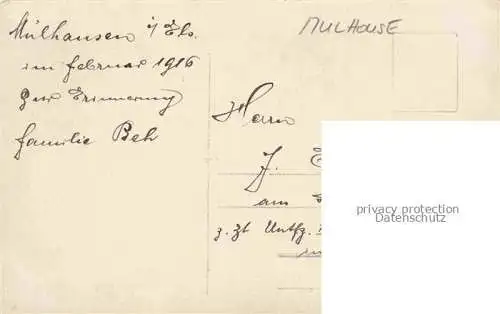 Mülhausen i/Els.
im februar 1916
Zur Erinnerung
familie Beh
MULHOUSE
Herrn
J.
am
z. Zt Untfz.
privacy protection
Datenschutz